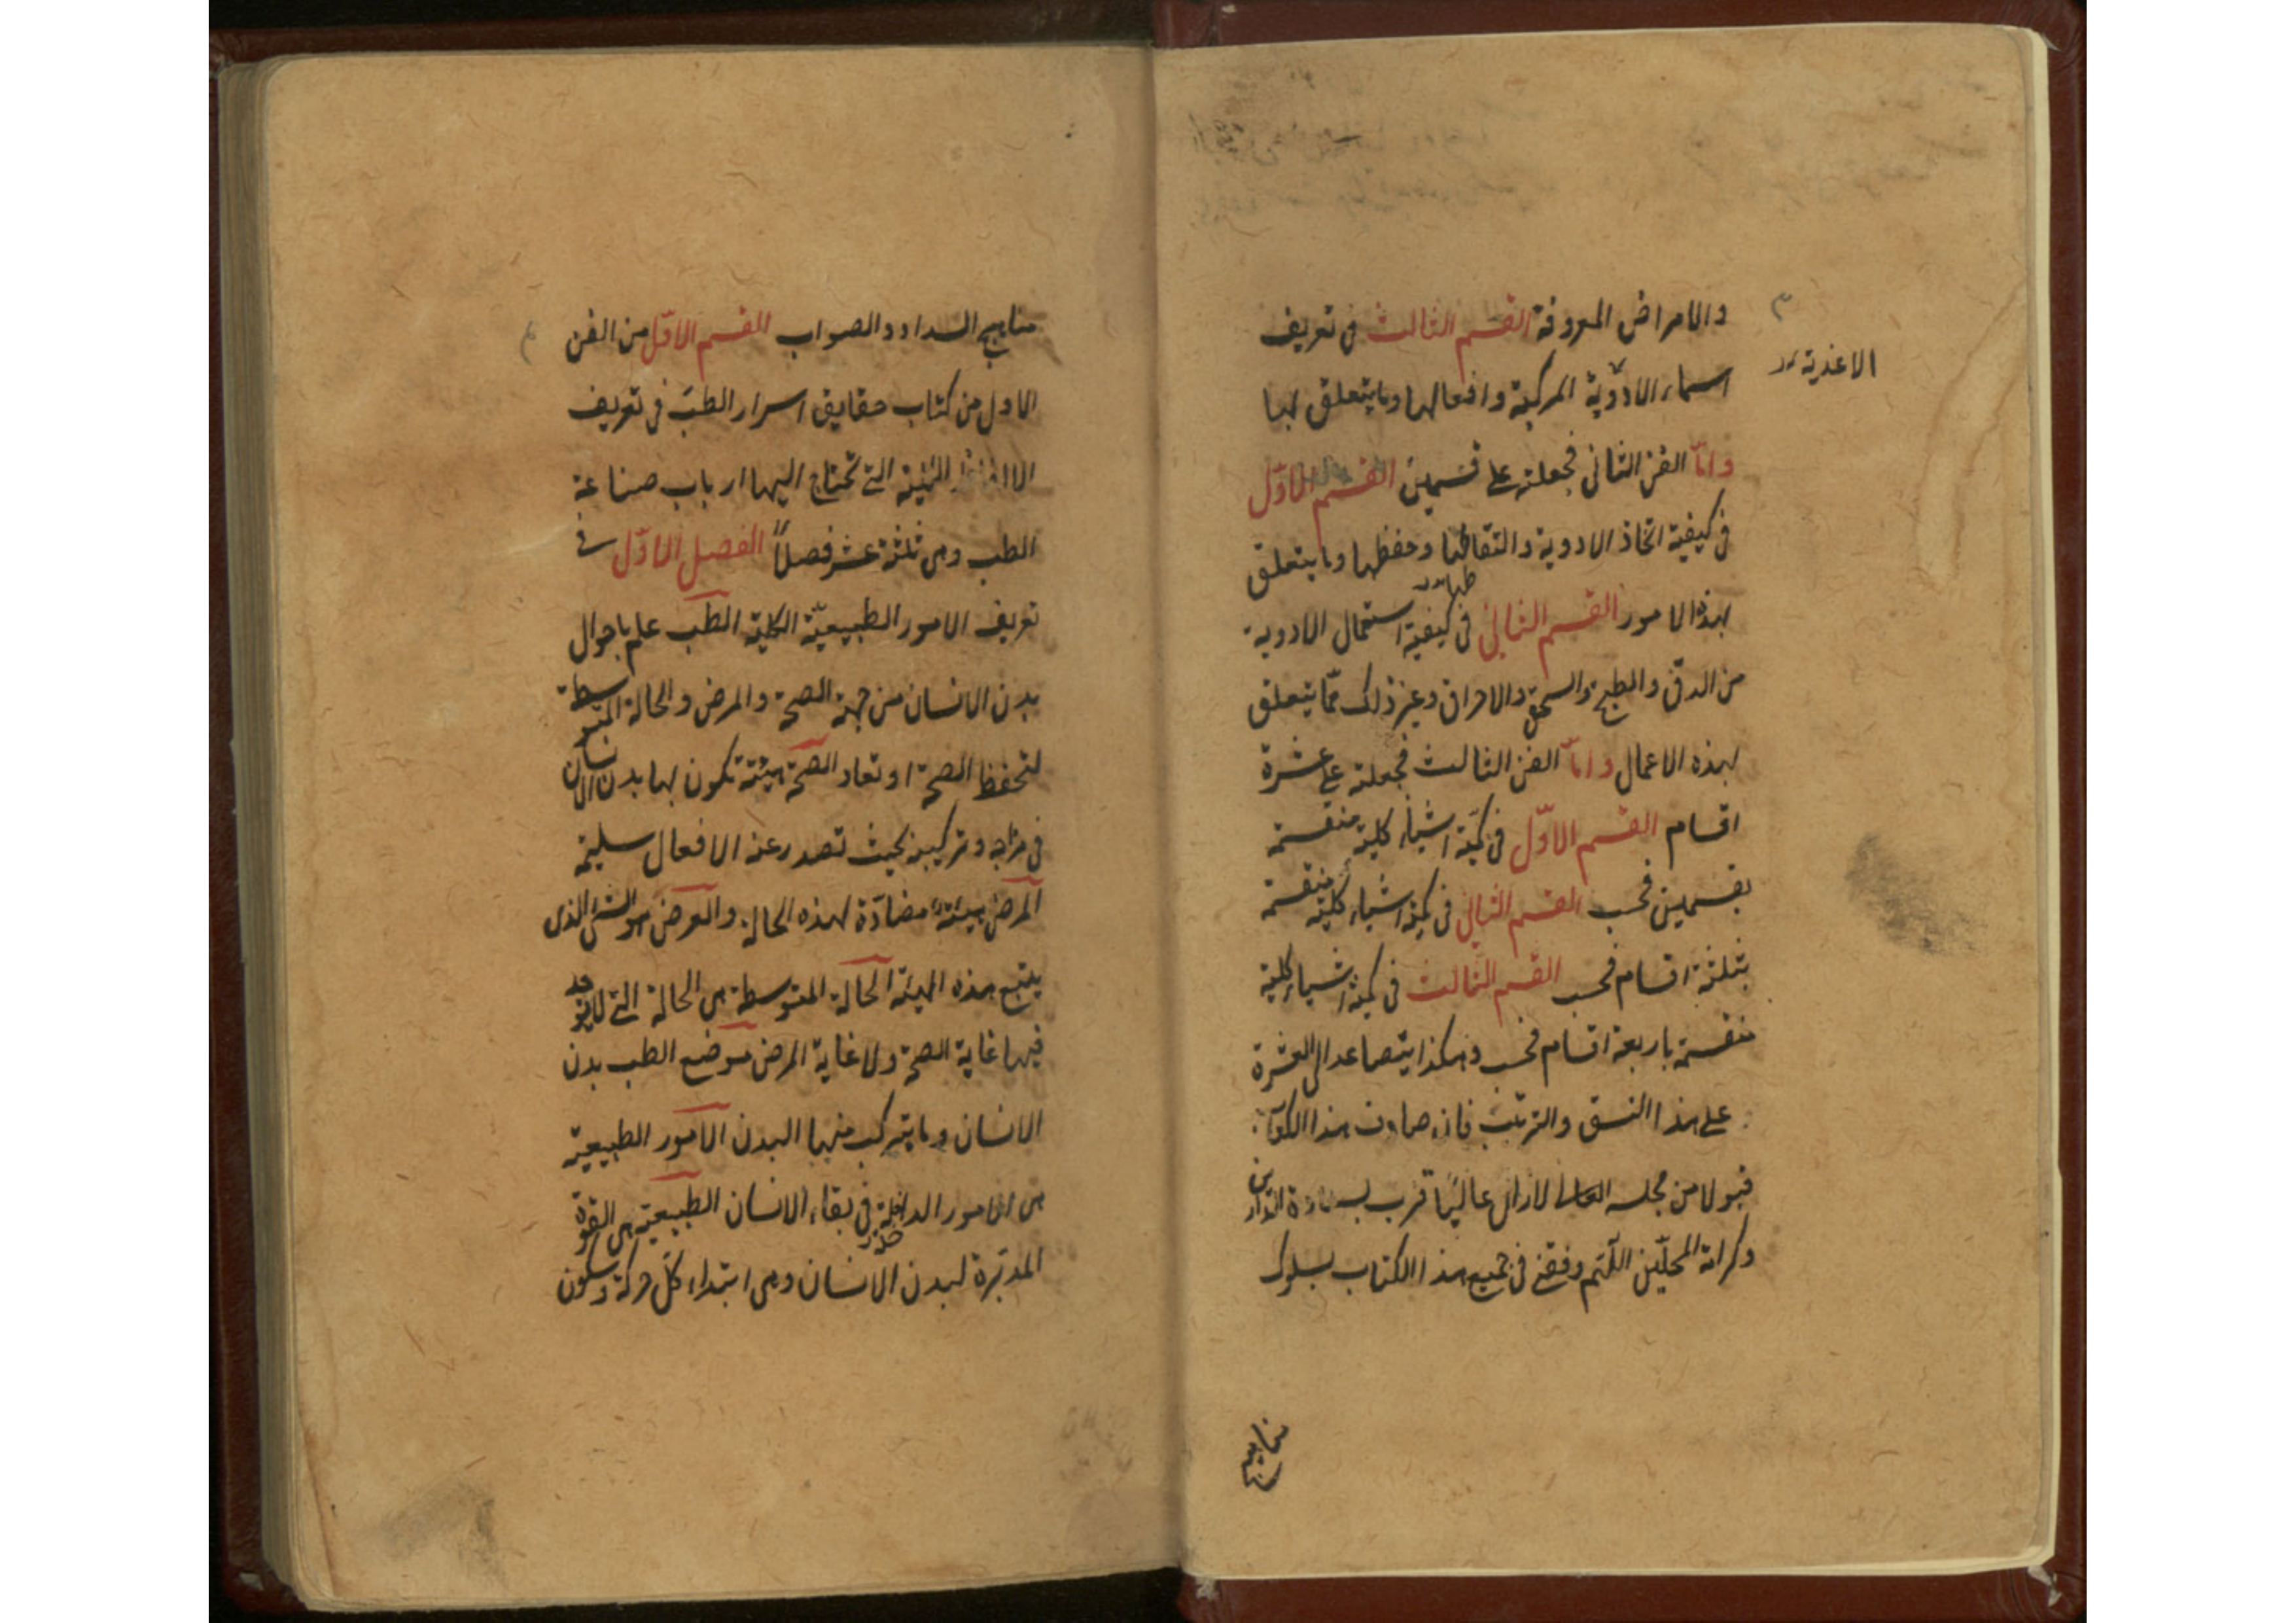 والامراض المعروفة القسم الثالث فى تعريف
الاغذية
اسماء الادوية المركبة وافعالها وما يتعلق بها
وامّا الفن الثانى فجعلته على قسمين القسم الاوّل
فى كيفية اتخاذ الادوية والتقاطها وحفظها وما يتعلق
بهذه الامور القسم الثانى فى كيفية استعمال الادوية
من الدقّ والطبخ والسحق والاحراق وغير ذلك ممّا يتعلق
بهذه الاعمال وامّا الفن الثالث فجعلته على عشرة
اقسام القسم الاوّل فى كميّة اشياء كلية منقسمة
بقسمين فحسب القسم الثانى فى كمية اشياء كلية منقسمة
بثلثة اقسام فحسب القسم الثالث فى كمية اشياء كلية
منقسمة باربعة اقسام فحسب وهكذا يتصاعد الى العشرة
على هذا النسق والترتيب فان صادف هذا الكتاب
قبولا من مجلسه العالى لازال عاليًا قرب بسعادة الدارين
وكرامة المحلّين اللّهم وفقنى فى جميع هذا الكتاب بسلوك
مناهج
مناهج السداد والصواب القسم الاوّل من الفن
الاول من كتاب حقايق اسرار الطبّ فى تعريف
الالفاظ التى تحتاج اليها ارباب صناعة
الطب وهى ثلثة عشر فصلاً الفصل الاوّل فى
تعريف الامور الطبيعيّة الكلية الطب علم باحوال
بدن الانسان من جهة الصحة والمرض والحالة المتوسطة
لتحفظ الصحة او تعاد الصحة هيئة تكون بها بدن الانسان
فى مزاجه وتركيبه بحيث تصدر عنه الافعال سليمة
المرض هيئة مضادّة لهذه الحالة والعرض هو الشئ الذى
يتبع هذه الهيئة الحالة المتوسطة هى الحالة التى لا يوجد
فيها غاية الصحة ولا غاية المرض موضع الطب بدن
الانسان وما يتركب منها البدن الامور الطبيعية
هى الامور الداخلة فى بقاء الانسان الطبيعية هى القوة
المدبّرة لبدن الانسان وهى ابتداء كلّ حركة وسكون